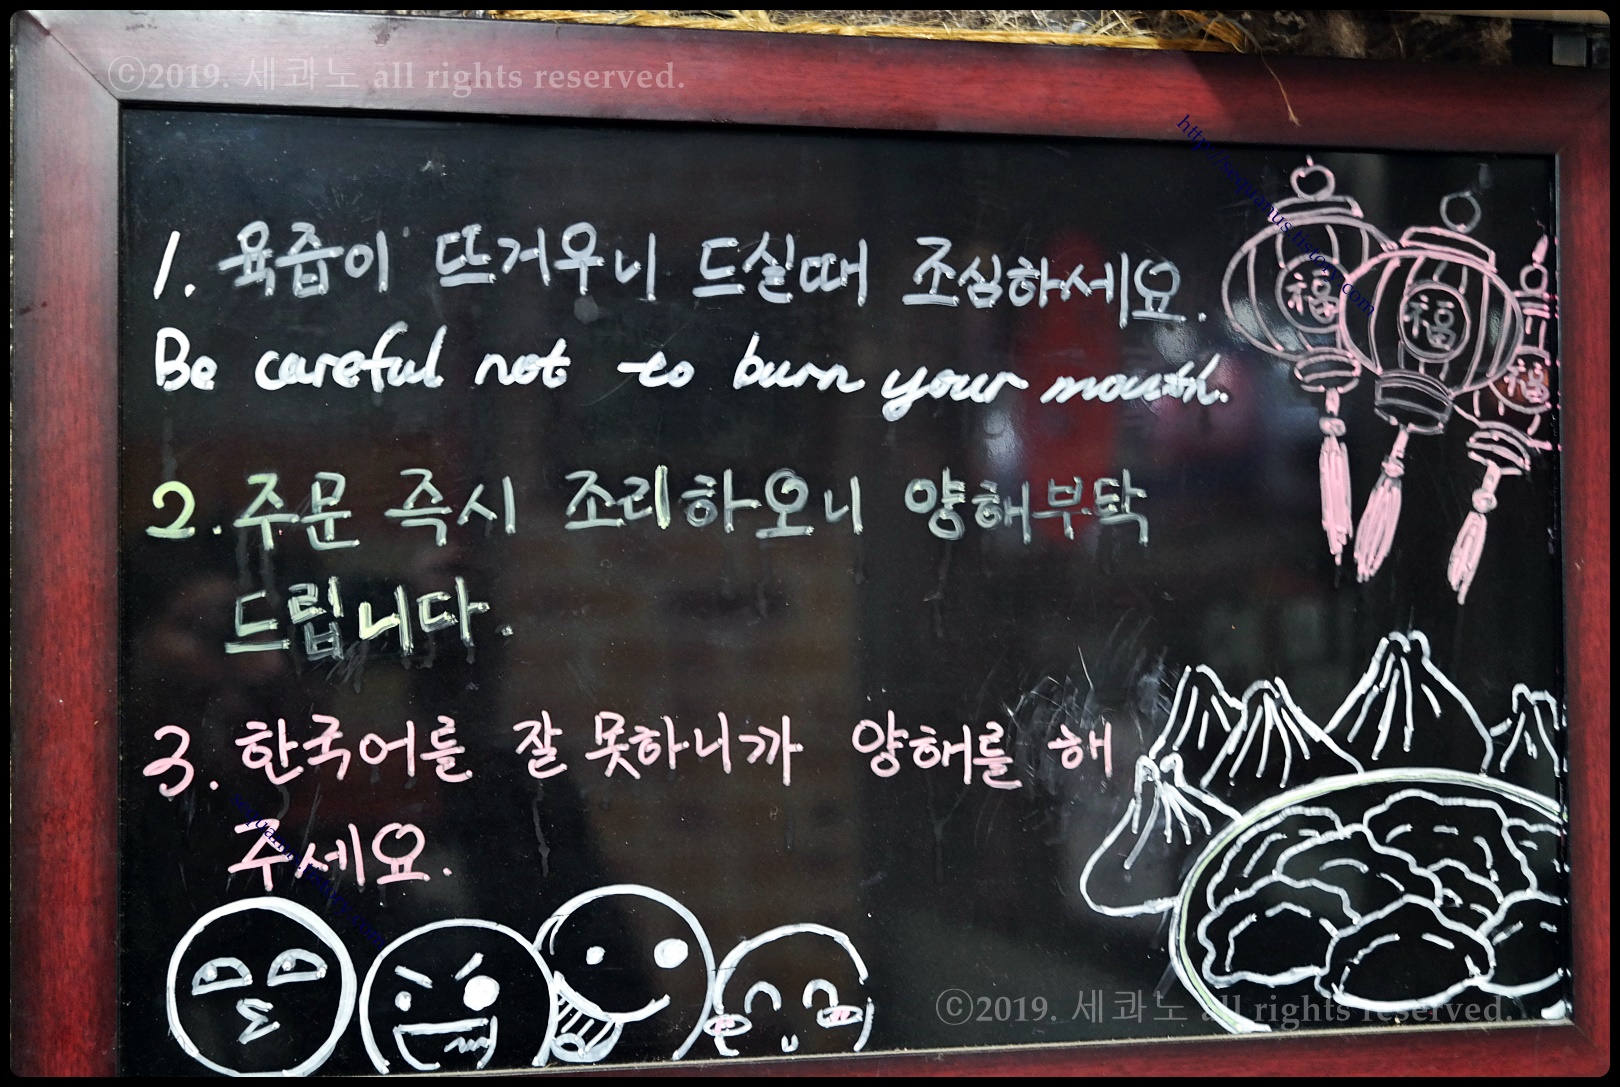 ©2019. 세콰노 all rights reserved.
http://sequanus.tistory.com
1. 육즙이 뜨거우니 드실때 조심하세요.
福 福 福
Be careful not to burn your mouth.
2. 주문 즉시 조리하오니 양해부탁
드립니다.
3. 한국어를 잘 못하니까 양해를 해
주세요.
©2019. 세콰노 all rights reserved.